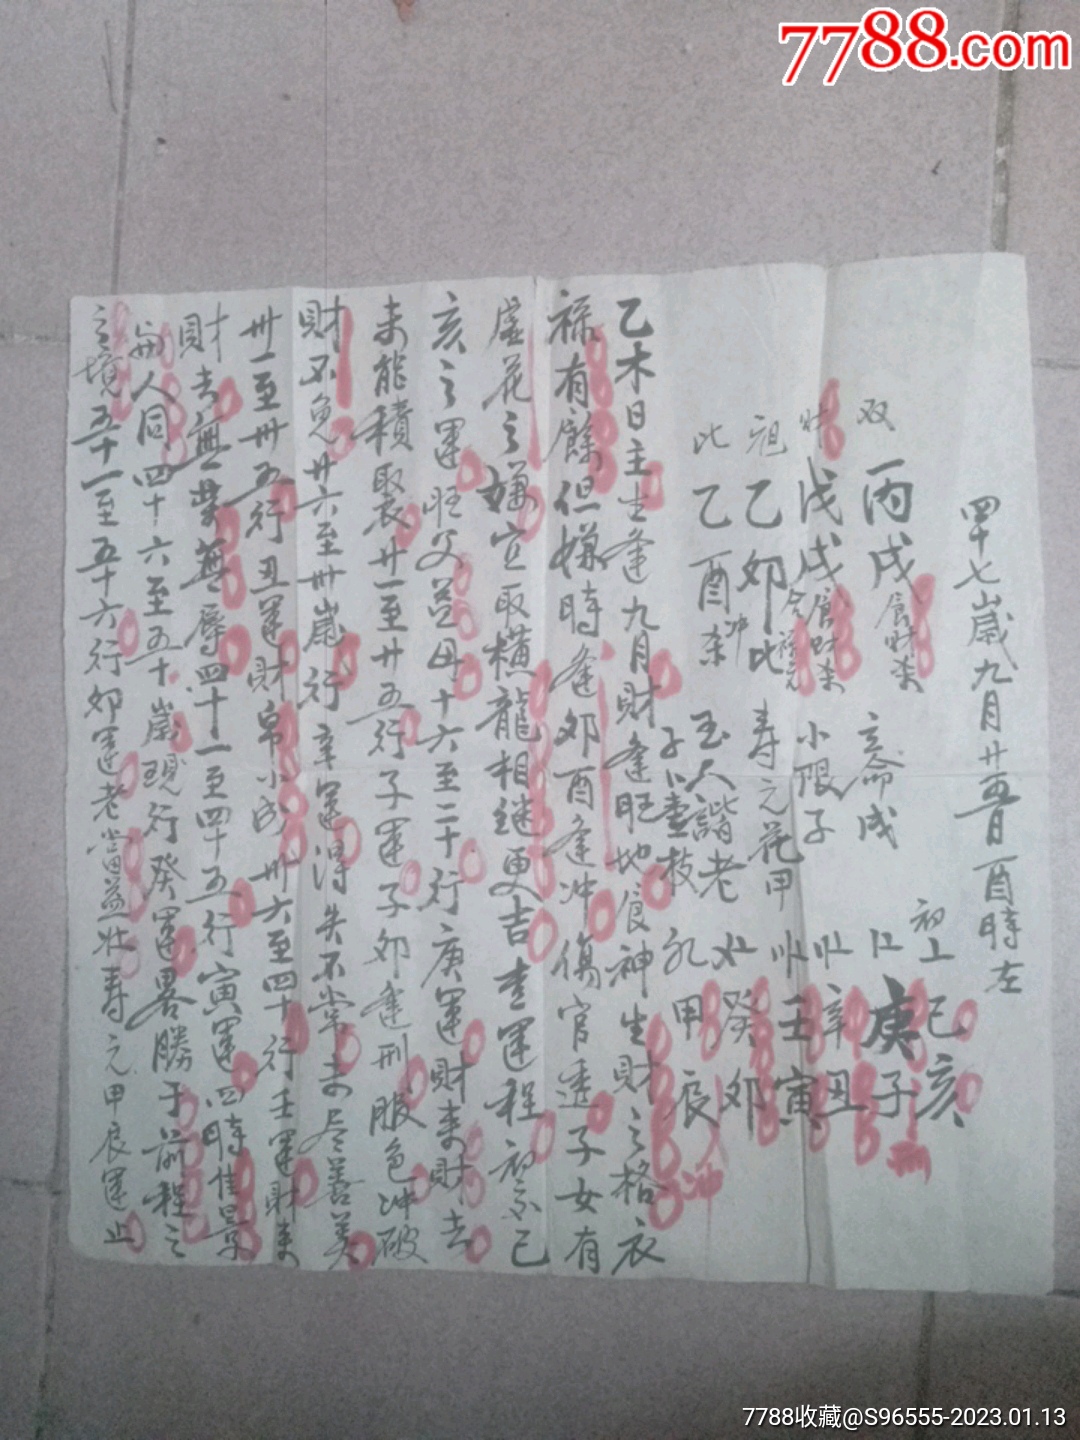 7788.com
四十七歲九月廿五日酉時左
双 丙戌 食財杀 立命戌
財 戊戌 食財杀 小限子
乙卯 比 寿元花甲
比 乙酉 杀 冲 玉人諧老
子 壹枝
初上 己亥
庚子 刑
辛丑
壬寅
癸卯
甲辰 冲
乙木日主生逢九月財逢旺地食神生財之格衣
禄有餘但嫌時逢卯酉逢冲傷官透子女有
虚花之嫌宜取横龍相継更吉查運程初交己
亥之運旺父益母十六至二十行庚運財来財去
未能積聚廿一至廿五行子運子卯逢刑服色冲破
財不免廿六至卅歲行辛運得失不常未尽善美
卅一至卅五行丑運財帛小成卅六至四十行壬運財来
財去無荣無辱四十一至四十五行寅運四時佳景
与人同四十六至五十歲現行癸運畧勝于前程之
之境五十一至五十六行卯運老當益壮寿元甲辰運止
7788收藏@S96555-2023.01.13